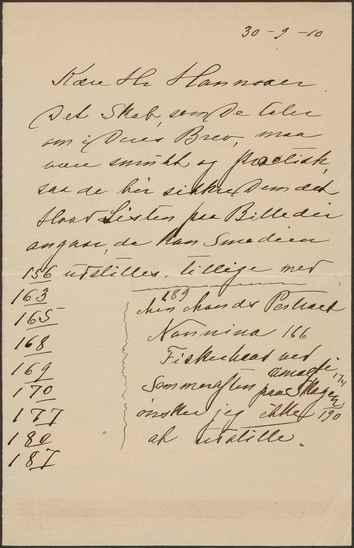 30-9-10
Kære Hr Hannover
Det Skab, som De taler
om i Deres Brev, maa
være smukt og practisk,
saa de bör sikkre Dem det
Hvad Listen paa Billeder
angaar, da kan Smedien
156 udstilles. tillige med
163
165
168
169
170
177
180
187
189
min Mands Portræt
Nannina 166
Fiskerbaad ved
Amalfi 174
Sommeraften paa Skagen 190
ønsker jeg ikke
at udstille.